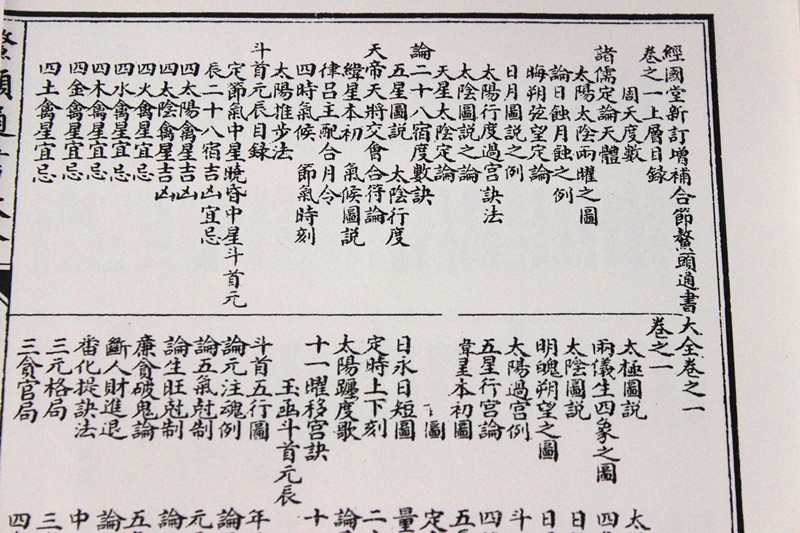 經國堂新訂增補合節鰲頭通書大全卷之一
卷之一上層目錄
周天度數
諸儒定論天體
太陽太陰兩曜之圖
論日蝕月蝕之例
晦朔弦望定論
日月圖說之例
太陽行度過宮訣法
太陰圖說之論
天星太陰定論
論二十八宿度數訣
五星圖說 太陰行度
天帝天將交會合得論
緯星本初 氣候圖說
律呂主配合月令
四時氣候 節氣時刻
太陽推步法
斗首元辰目錄
定節氣中星曉昏中星斗首元
辰二十八宿吉凶宜忌
四太陽禽星吉凶
四太陰禽星吉凶
四火禽星宜忌
四水禽星宜忌
四木禽星宜忌
四金禽星宜忌
四土禽星宜忌
卷之一
太極圖說
兩儀生四象之圖
太陰圖說
明魄朔望之圖
太陽過宮例
五星行宮論
緯星本初圖
圖
日永日短圖
定時上下刻
太陽躔度歌
十一曜移宮訣
玉函斗首元辰
斗首五行圖
論元注魂例
論五氣尅制
論生旺尅制
廉貪破鬼論
斷人財進退
番化提訣法
三元格局
三貪官局
太
四
日
日
斗
四
五
定
量
二
論
十
年
論
元
論
五
論
中
三
四